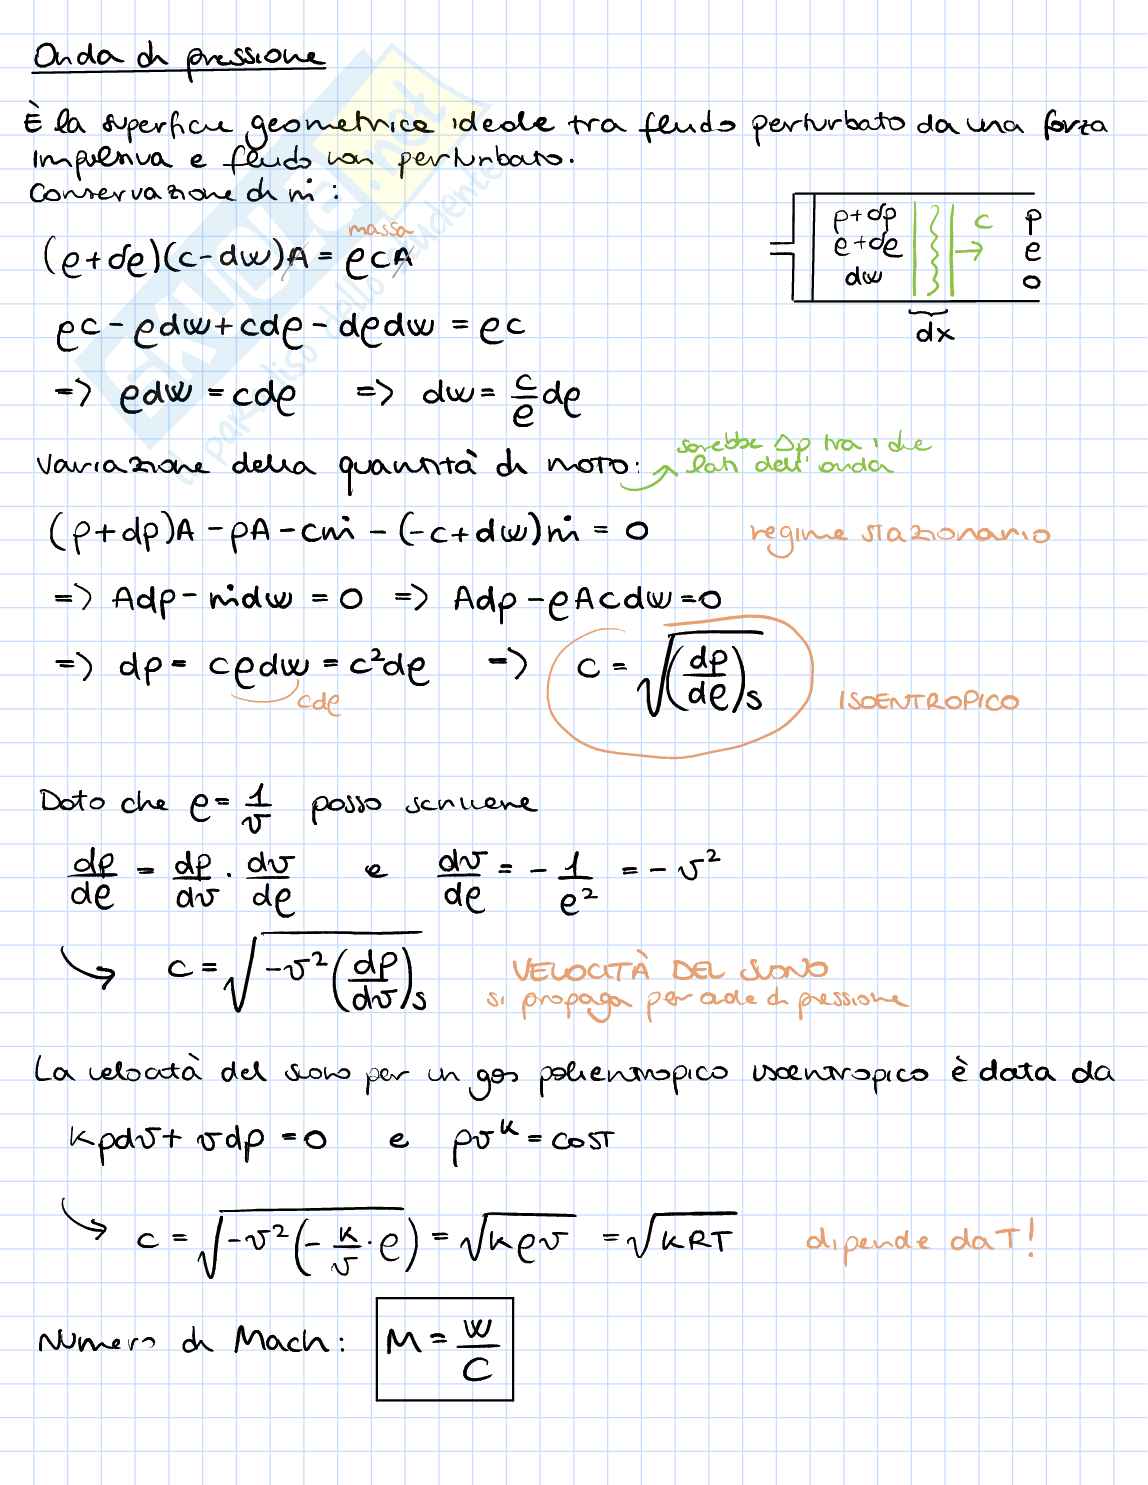 Onda di pressione
È la superficie geometrica ideale tra fluido perturbato da una forza
impulsiva e fluido non perturbato.
Conservazione di ṁ:
massa
(ρ+dρ)(c-dw)A = ρcA
p+dp
ρ+dρ
dw
c
p
ρ
0
dx
ρc - ρdw + cdρ - dρdw = ρc
=> ρdw = cdρ => dw = c/ρ dρ
Variazione della quantità di moto:
sarebbe Δp tra i due
lati dell'onda
(p+dp)A - pA - cṁ - (-c+dw)ṁ = 0
regime stazionario
=> Adp - ṁdw = 0 => Adp - ρAcdw = 0
=> dp = cρdw = c²dρ => c = √(dp/dρ)s
cdρ
ISOENTROPICO
Dato che ρ = 1/v posso scrivere
dp/dρ = dp/dv · dv/dρ e dv/dρ = - 1/ρ² = - v²
c = √-v²(dp/dv)s
VELOCITÀ DEL SUONO
si propaga per onde di pressione
La velocità del suono per un gas polientropico isoentropico è data da
kpdv + vdp = 0 e pv^k = cost
c = √-v²(-k/v · ρ) = √kρv = √kRT
dipende da T!
Numero di Mach: M = w/c
SKUOLA.net
il paradiso dello studente